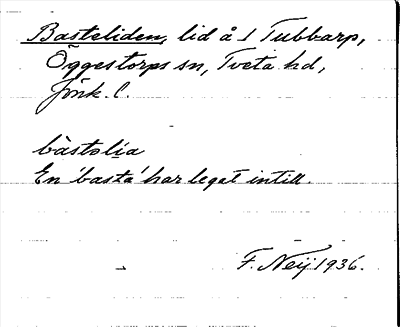 Basteliden, lid å 1 Tubbarp,
Öggestorps sn, Tveta hd,
Jönk. l.
bàstolia
En 'basta' har legat intill.
F. Neij 1936.